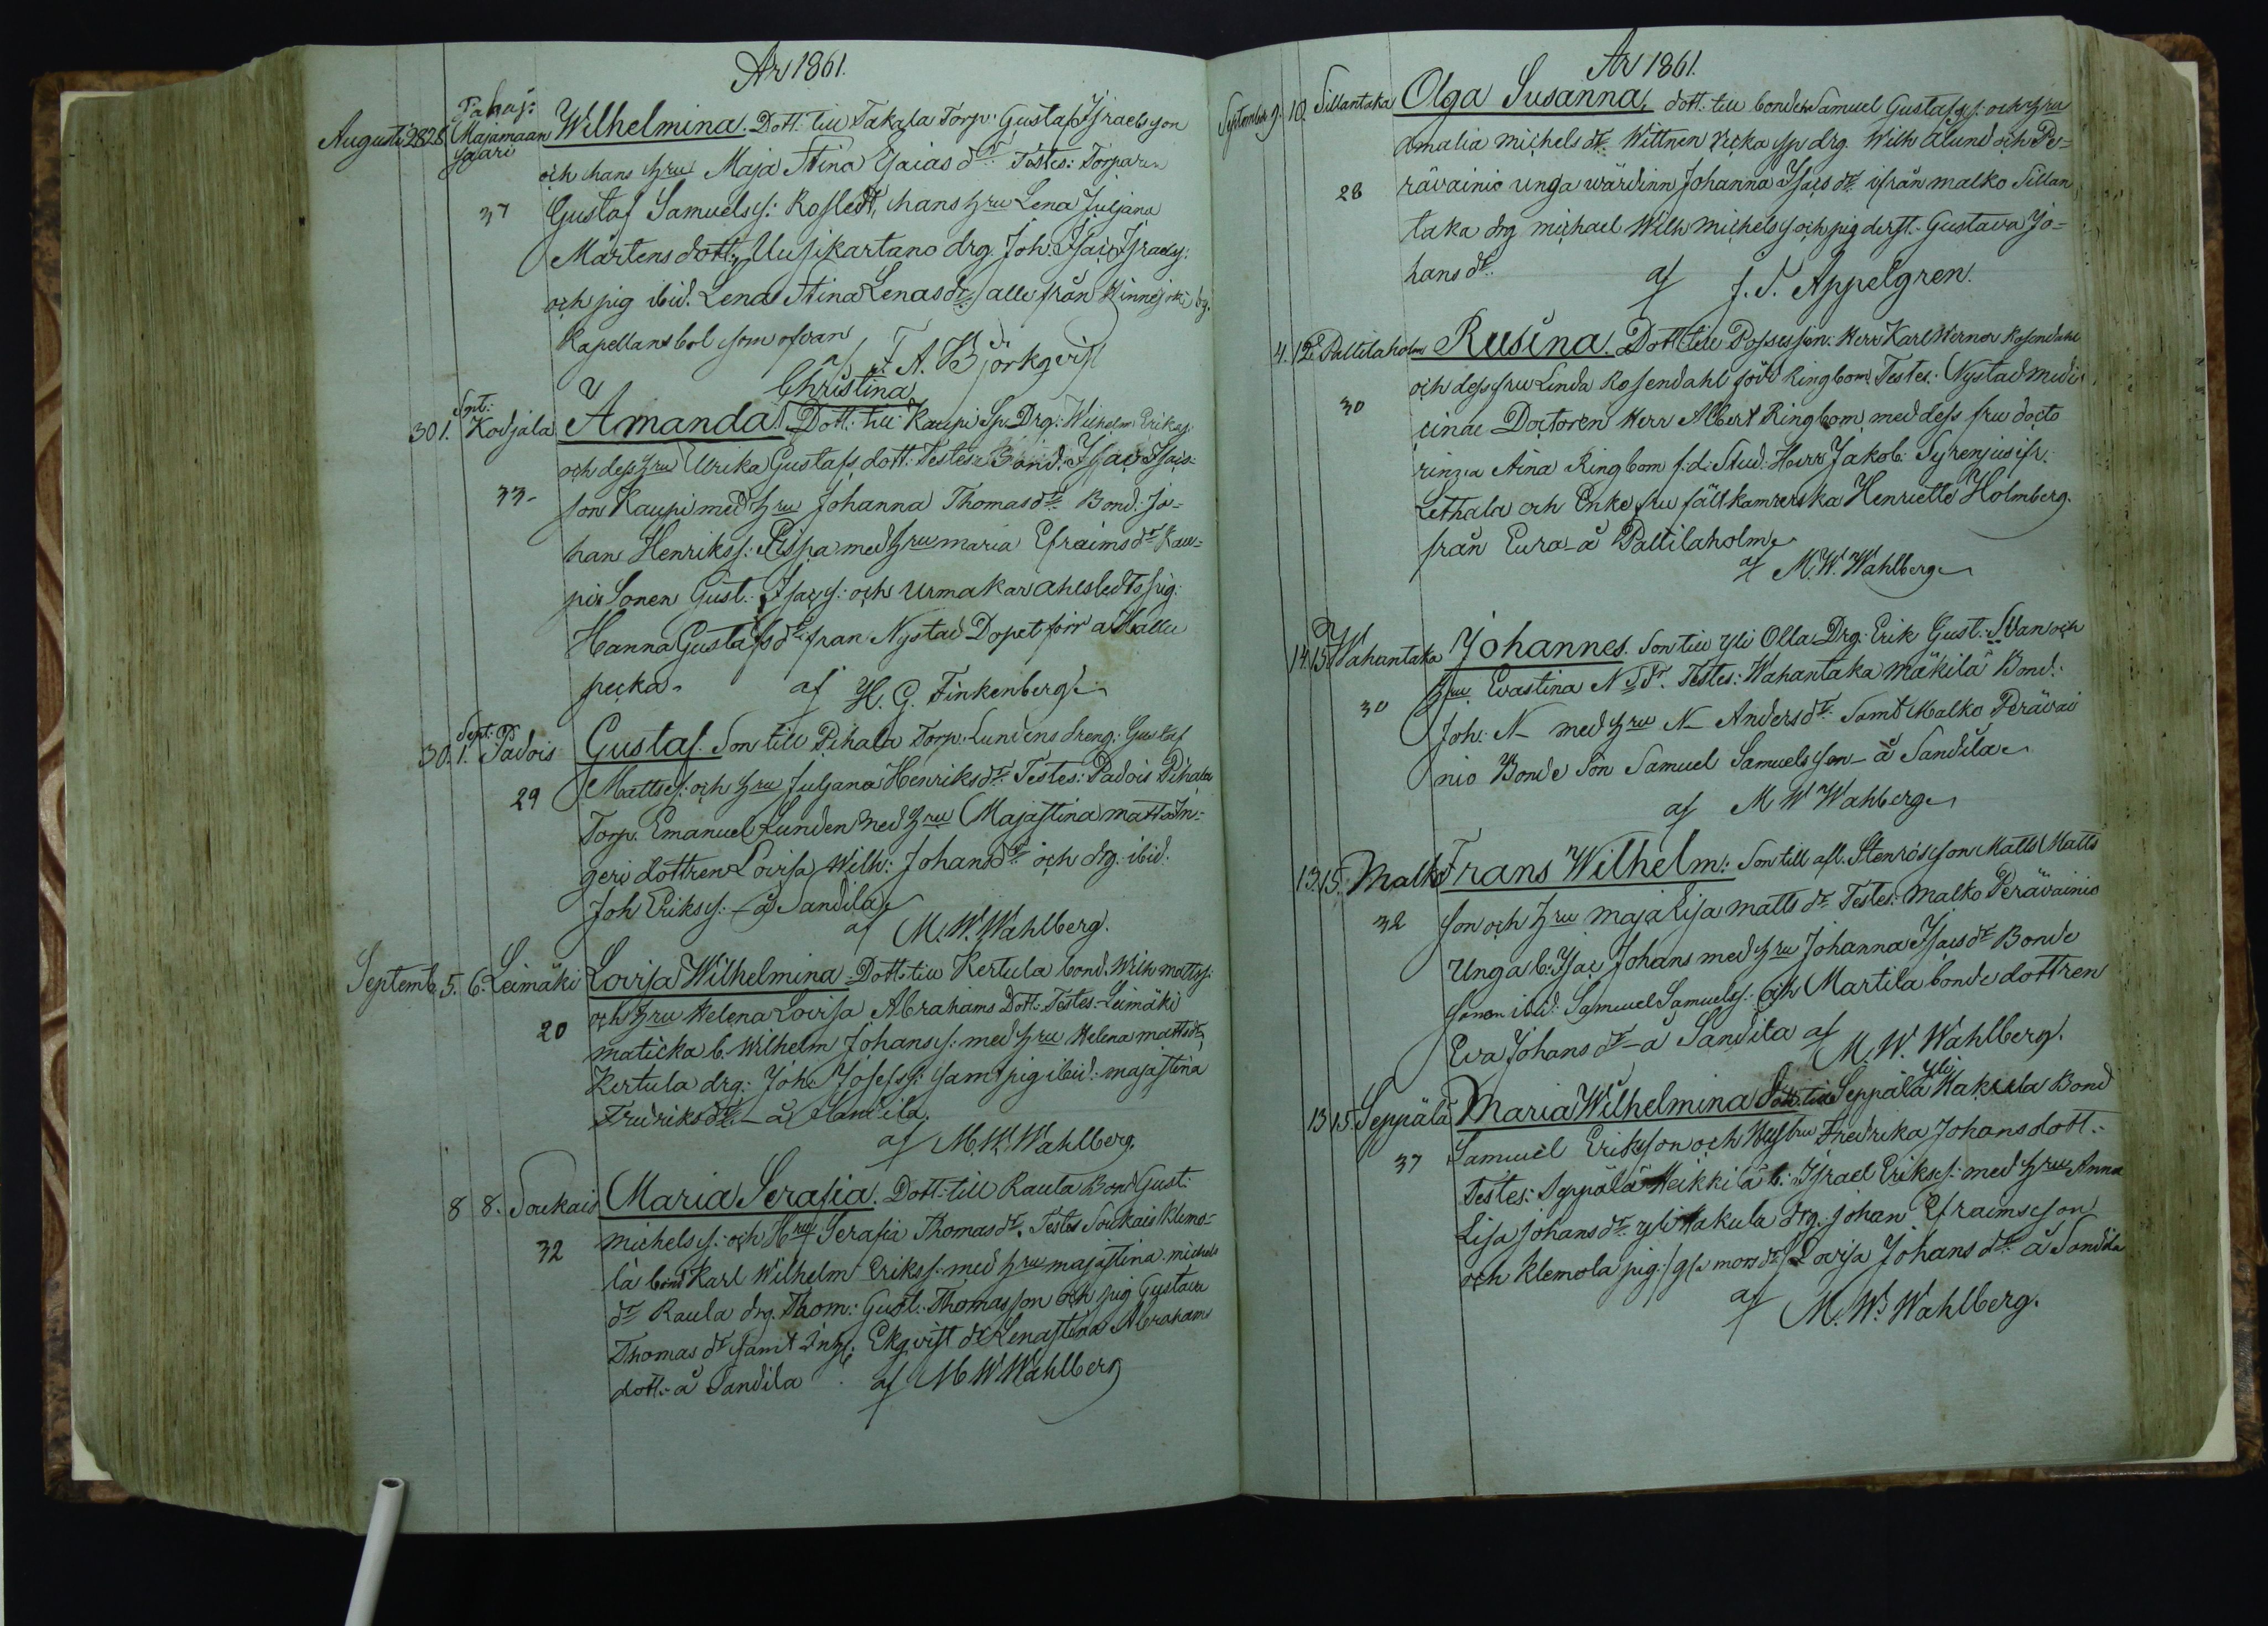 År 1861.
Augusti 28 28 Majamaan saari Wilhelmina. Dott: till Takala Torp: Gustaf Israelsson
och hans hru Maja Stina Esaias dr Testes: Torparen
37 Gustaf Samuelss: Rosledt, hans hru Lena Juljana
Mårtensdott:, Uusikartano drg. Joh: Isac Israelss:
och pig ibid. Lena Stina Lenas dr, alle från Hinnerjoki by.
Kapellansbol som ofvan
af F. A. Björkqvist
Christina
30 1. Sept: Kodjala Amanda Dott: till Kaupi Sp. Drg: Wilhelm Erikss:
och dess hru Ulrika Gustafs dott: Testes: Bond. Isac Isacs-
33- son Kaupi med hru Johanna Thomas dr Bond: Jo=
han Henrikss: Pispa med hru Maria Efraims dr Kau=
pi Sonen Gust: Isacs: och Urmakar Ahlstedts pig:
Hanna Gustafs dr från Nystad Dopet förr a Halli
pecka. af H. G. Finkenberg.
30. 1. Sept: Padois Gustaf. Son till Pihala Torp: Lundens dreng: Gustaf
29 Mattss: och hru Juljana Henriks dr Testes: Padois Pihala
Torp. Emanuel Lunden med hru Majastina Matts dr In=
geri dottren Lovisa Wilh: Johans dr och drg. ibid.
Joh Erikss: å Sandila
af M. W. Wahlberg.
Septemb. 5. 6. Leimäki Lovisa Wilhelmina. Dott: till Kertula bond. Wilh Mattss:
20 och hru Helena Lovisa Abrahams Dott: Testes: Leimäki
maticka b. Wilhelm Johanss: med hru Helena Matts dr,
Kertula drg: Joh: Josefss: samt pig ibid: Majastina
Fredriks dr å Sandila.
af M. W. Wahlberg.
8 8. Soukais Maria Serafia. Dott: till Raula Bond Gust:
32 Michelss: och Hru Serafia Thomas dr. Testes Soukais Klemo=
la bond Karl Wilhelm Erikss: med hru Majastina Michels
dr Raula drg. Thom: Gust. Thomasson och pig Gustava
Thomas dr samt Inh: Ekqvist dr Lenastina Abrahams
dott: å Sandila af M W Wahlberg
År 1861.
September 9. 10. Sillantaka Olga Susanna, dott: till bonden Samuel Gustafss: och hru
Amalia Michels dr. Wittnen Ricka sp drg. Wilh Alund och Pe=
28 rävainio unga wärdinn Johanna Isacs dr ifrån Malko Sillan
taka drg Michael Wilh Michelss och pig derst. Gustava Jo=
hans dr.
af J. S. Appelgren.
4. 12 Pallilaholm Rusina. Dott till Possession: Herr Karl Werner Rosendahl
och dess fru Linda Rosendahl född Ringbom Testes: Nystad medi
30 cinae Doctoren Herr Albert Ringbom med dess fru docto
rinna Aina Ringbom f.d. Stud: Herr Jakob. Syrenius ifr.
Lethala och Enke fru fältkamrerska Henriette Holmberg.
från Eura å Pallilaholm
af M. W. Wahlberg
14. 15 Wahantaka Johannes. Son till Yli Olla Drg: Erik Gust: Svan och
30 hru Evastina N. dr. Testes: Wahantaka Mäkilä Bond:
Joh: N med hru N Anders dr Samt Malko Perävai
nio Bonde Son Samuel Samuelsson å Sandila
af M W Wahberg
13. 15. Malko Frans Wilhelm: Son till afl. Stenrös son Matts Matts
32 son och hru Maja Lisa Matts dr Testes: Malko Perävainio
Unga b: Isac Johans med hru Johanna Isacs dr Bonde
sonen ibid: Samuel Samuelss: och Martila bonde dottren
Eva Johans dr å Sandila af
M. W. Wahlberg.
13 15 Seppälä Maria Wilhelmina Dott. till Seppälä Yli Hakula Bond
37 Samuel Eriksson och Hustru Fredrika Johansdott:
Testes: Seppälä Heikkilä b: Israel Erikss: med hru Anna
Lisa Johans dr yli Hakula drg. Johan Efraimsson
och Klemola pig. Lovisa Johans dr å Sandila
af M. W. Wahlberg.